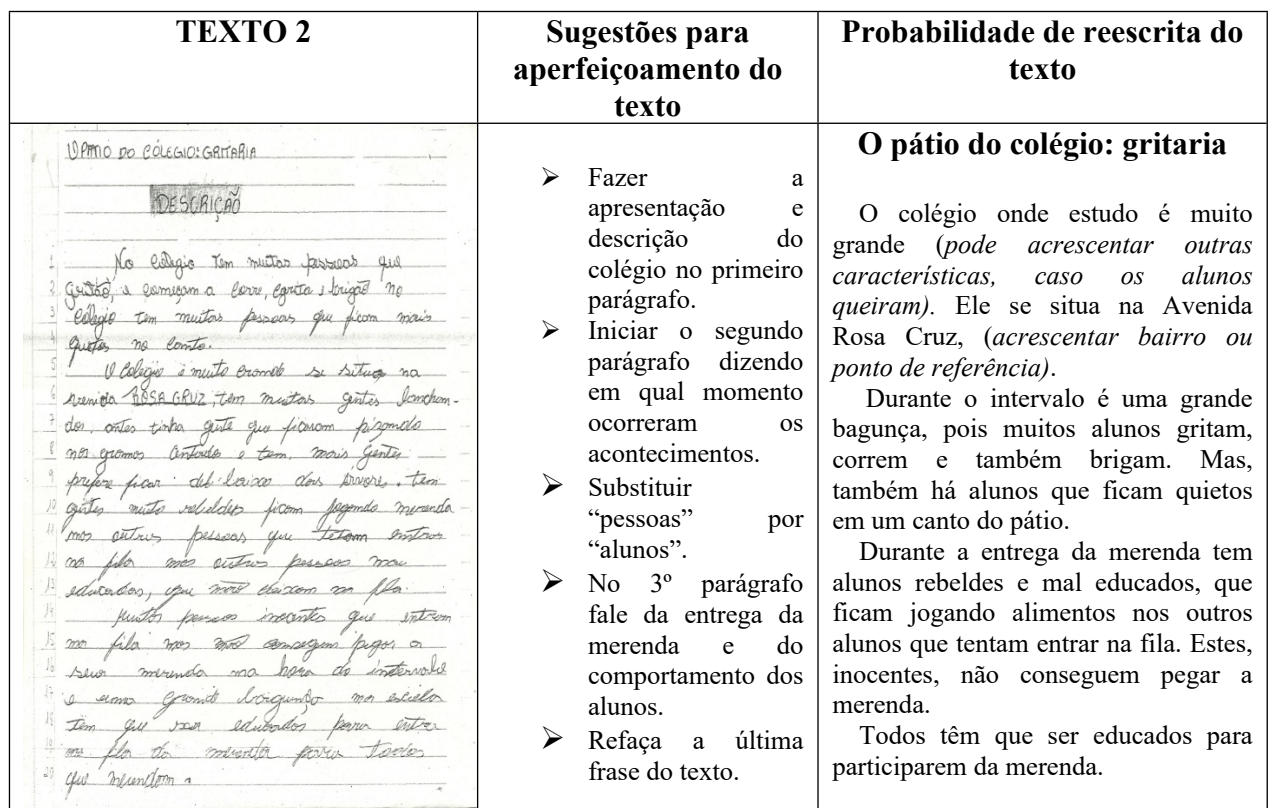 TEXTO 2
Sugestões para
aperfeiçoamento do
texto
Probabilidade de reescrita do
texto
O PATIO DO COLEGIO: GRITARIA
DESCRIÇÃO
1 No Colegio tem muitas pessoas que
2 gritão, e começam a corre, egrita e brigão no
3 Colegio tem muitas pessoas que ficam mais
4 no canto.
5 O Colegio é muito se situa na
6 avenida ROSA CRUZ, tem muitas gentes lancham-
7 do, antes tinha gente que ficaram
8 nos e tem mais gentes
9 prefere ficar dos arvores. tem
10 gentes muito rebeldes ficam jogando merenda
11 nos outros pessoas que entrar
12 na fila mos outros pessoas mau
13 educados, que não deixam na fila.
14 muitos pessoas que entram
15 na fila mas não conseguem pegar a
16 seus merenda na hora do intervalo
17 e uma grande na escola
18 tem que ser educados para entrar
19 na fila da merenda para todos
20 que merendam.
➢ Fazer a
apresentação e
descrição do
colégio no primeiro
parágrafo.
➢ Iniciar o segundo
parágrafo dizendo
em qual momento
ocorreram os
acontecimentos.
➢ Substituir
“pessoas” por
“alunos”.
➢ No 3º parágrafo
fale da entrega da
merenda e do
comportamento dos
alunos.
➢ Refaça a última
frase do texto.
O pátio do colégio: gritaria
O colégio onde estudo é muito
grande (pode acrescentar outras
características, caso os alunos
queiram). Ele se situa na Avenida
Rosa Cruz, (acrescentar bairro ou
ponto de referência).
Durante o intervalo é uma grande
bagunça, pois muitos alunos gritam,
correm e também brigam. Mas,
também há alunos que ficam quietos
em um canto do pátio.
Durante a entrega da merenda tem
alunos rebeldes e mal educados, que
ficam jogando alimentos nos outros
alunos que tentam entrar na fila. Estes,
inocentes, não conseguem pegar a
merenda.
Todos têm que ser educados para
participarem da merenda.